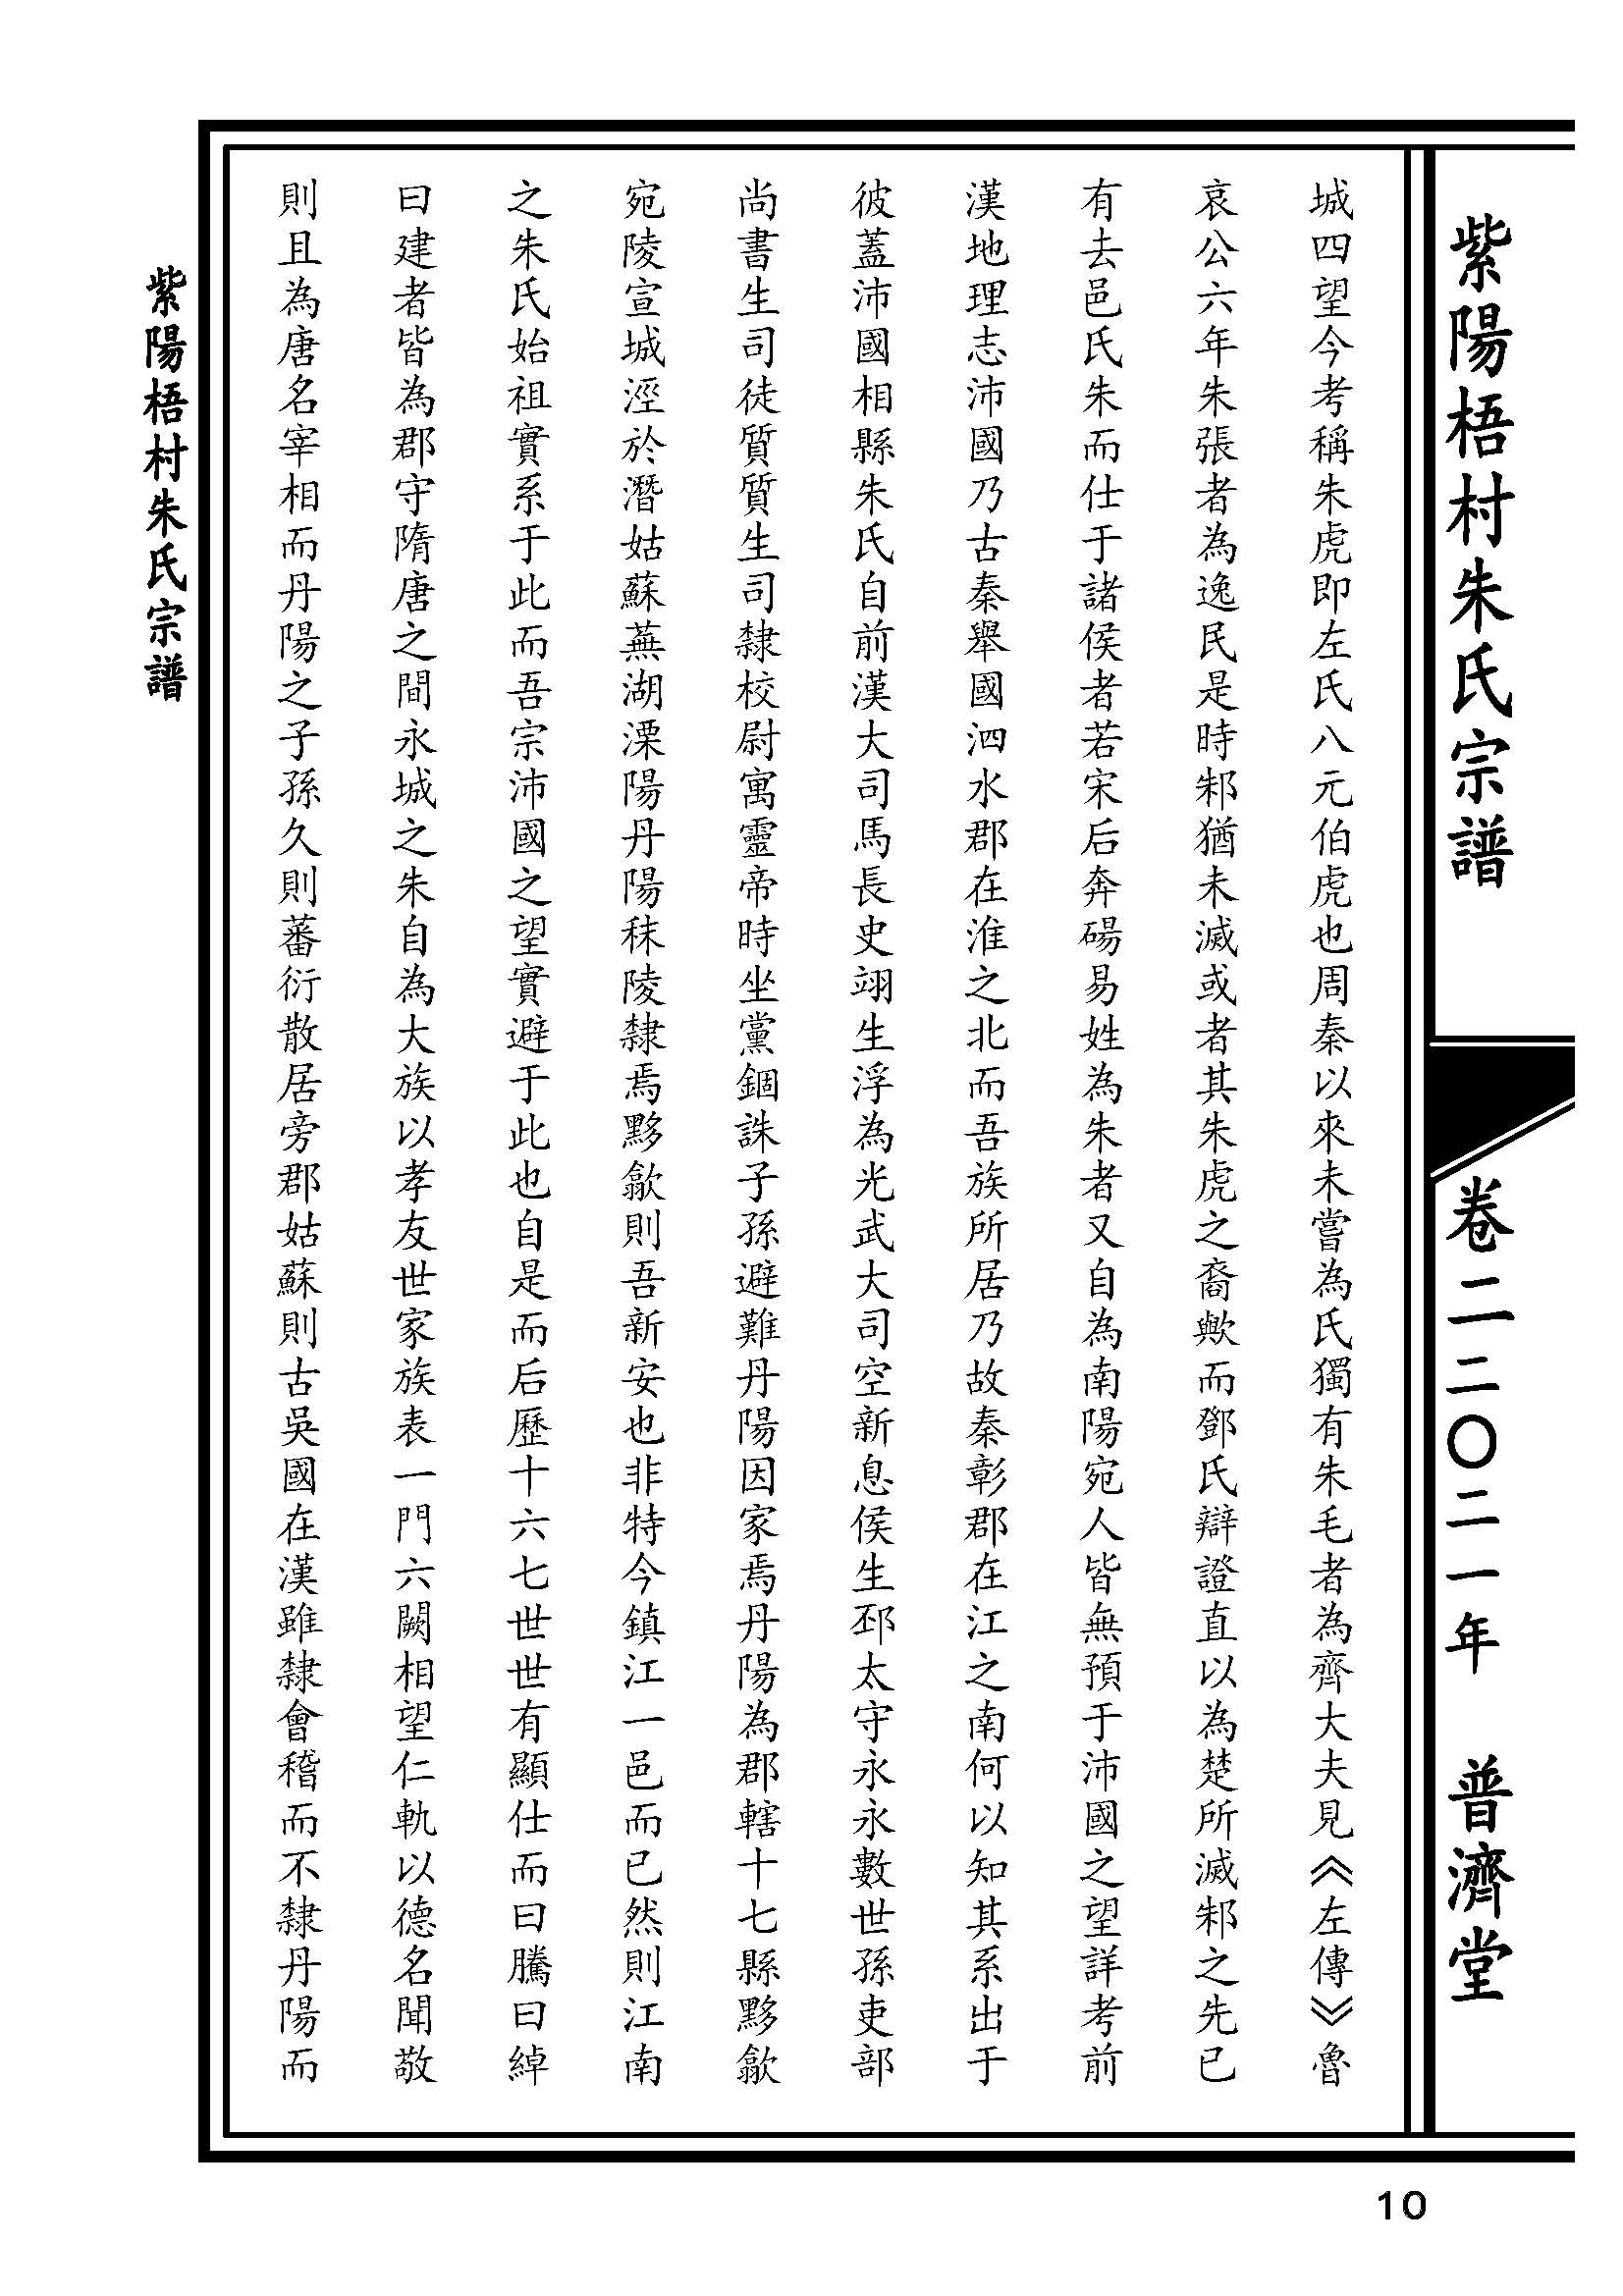 紫陽梧村朱氏宗譜
卷二
二〇二一年
普濟堂
城四望今考稱朱虎即左氏八元伯虎也周秦以來未嘗為氏獨有朱毛者為齊大夫見《左傳》魯
哀公六年朱張者為逸民是時邾猶未滅或者其朱虎之裔歟而鄧氏辯證直以為楚所滅邾之先已
有去邑氏朱而仕于諸侯者若宋后奔碭易姓為朱者又自為南陽宛人皆無預于沛國之望詳考前
漢地理志沛國乃古秦舉國泗水郡在淮之北而吾族所居乃故秦彰郡在江之南何以知其系出于
彼蓋沛國相縣朱氏自前漢大司馬長史翊生浮為光武大司空新息侯生邳太守永永數世孫吏部
尚書生司徒質質生司隸校尉寓靈帝時坐黨錮誅子孫避難丹陽因家焉丹陽為郡轄十七縣黟歙
宛陵宣城涇於潛姑蘇蕪湖溧陽丹陽秣陵隸焉黟歙則吾新安也非特今鎮江一邑而已然則江南
之朱氏始祖實系于此而吾宗沛國之望實避于此也自是而后歷十六七世世有顯仕而曰騰曰綽
曰建者皆為郡守隋唐之間永城之朱自為大族以孝友世家族表一門六闕相望仁軌以德名聞敬
則且為唐名宰相而丹陽之子孫久則蕃衍散居旁郡姑蘇則古吳國在漢雖隸會稽而不隸丹陽而
紫陽梧村朱氏宗譜
10